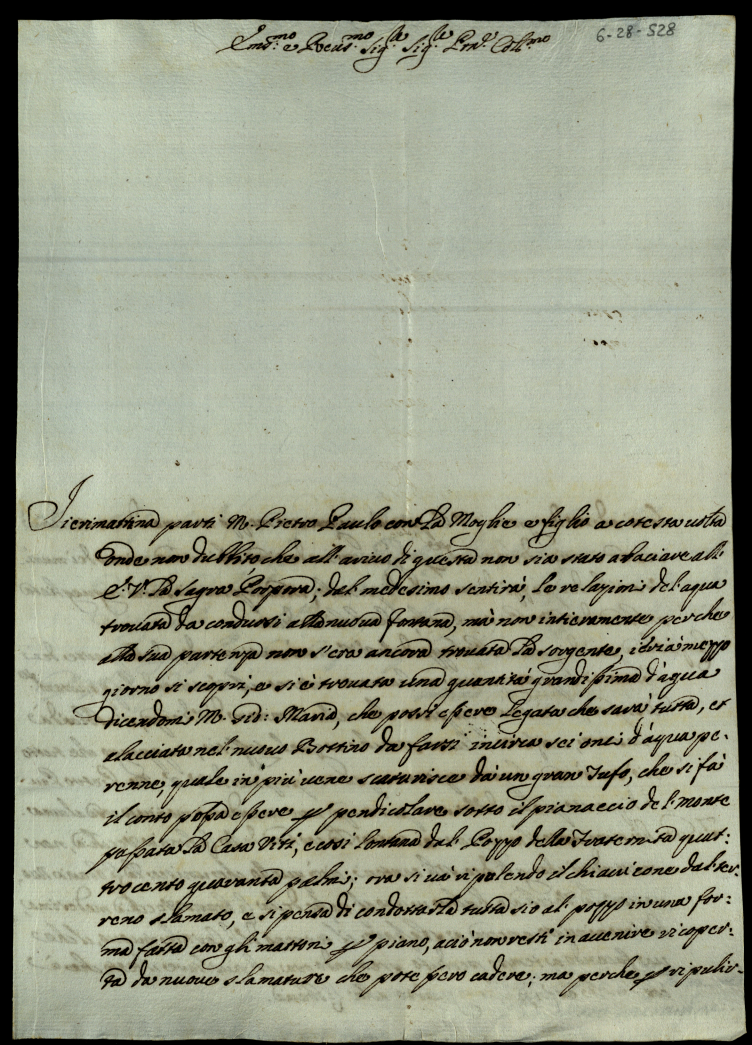 Em.mo e Reu.mo Sig.re Sig.re Pron. Coll.mo
6-28-528
Ierimattina partì M. Pietro Paulo con la Moglie e figlio a cotesta uolta
onde non dubbito che all'arriuo di questa non sia stato a baciare all'
E. V. la Sagra Porpora; dal medesimo sentirà, le relazioni del'aqua
trouata da condursi alla nuoua fontana, mà non intieramente perche
alla sua partenza non s'era ancora trouata la sorgente, ieri à mezzo
giorno si scoprì, e si è trouata una quantità grandissima d'aqua
dicendomi M. Gid: Maria, che possi essere legata che sarà tutta, et
alacciata nel nuouo Bottino da farsi incirca sei onci d'aqua pe-
renne, quale in più uene scaturisce dà un gran Tufo, che si fà
il conto possa essere p pendicolare sotto il pianaccio del monte
passata la Casa Viti, e così lontana dal Pozzo della Fraternita quat:
trocento quaranta palmi; ora si uà ripulendo il chiauicone dal ter-
reno slamato, e si pensa di condottarla tutta sio al pozzo in una for:
ma fatta con gli mattoni p piano, aciò non resti in auuenire ricoper-
ta da nuoue slamature che potessero cadere; ma perche p ripulir-